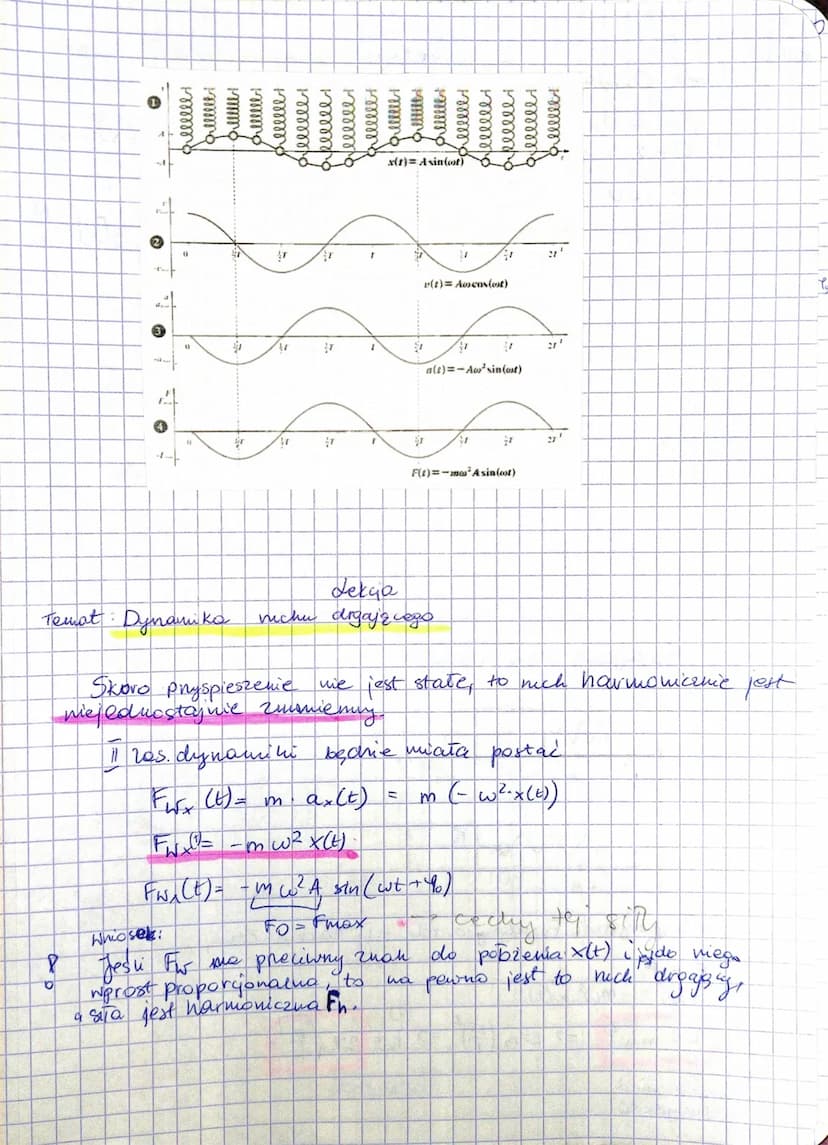 1
x(t)= A sin(ωt)
2
0 T 2T
v(t)= Aω cos(ωt)
3
0 T 2T
a(t)= −Aω² sin(ωt)
4
0 T 2T
F(t)= −mω² A sin(ωt)
Lekcja
Temat: Dynamika ruchu drgającego
Skoro przyspieszenie nie jest stałe, to ruch harmonicznie jest
niejednostajnie zmienny.
II zas. dynamiki będzie miała postać
Fwx (t) = m · ax(t) = m (− ω²·x(t))
Fwx(t) = −m ω² x(t).
Fwx(t) = −m ω² A sin(ωt + φ0)
F0 = Fmax → cechy tej siły
Wniosek:
! Jeśli Fw ma przeciwny znak do położenia x(t) i do niego
wprost proporcjonalna, to na pewno jest to ruch drgający,
a siła jest harmoniczna Fh.